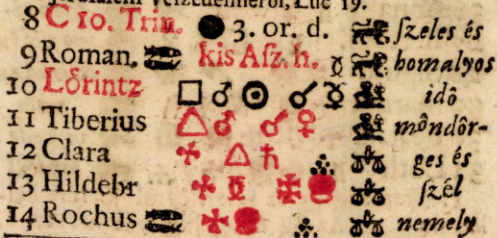 8 C 10. Trin. ● 3. or. d. ſzeles és
9 Roman. kis Aſz. h. ☿ homalyos
10 Lőrintz □ ♂ ☉ ☌ ☿ idő
11 Tiberius △ ♂ ☌ ♀ mőndőr-
12 Clara △ ♄ ges és
13 Hildebr ſzél
14 Rochus nemely